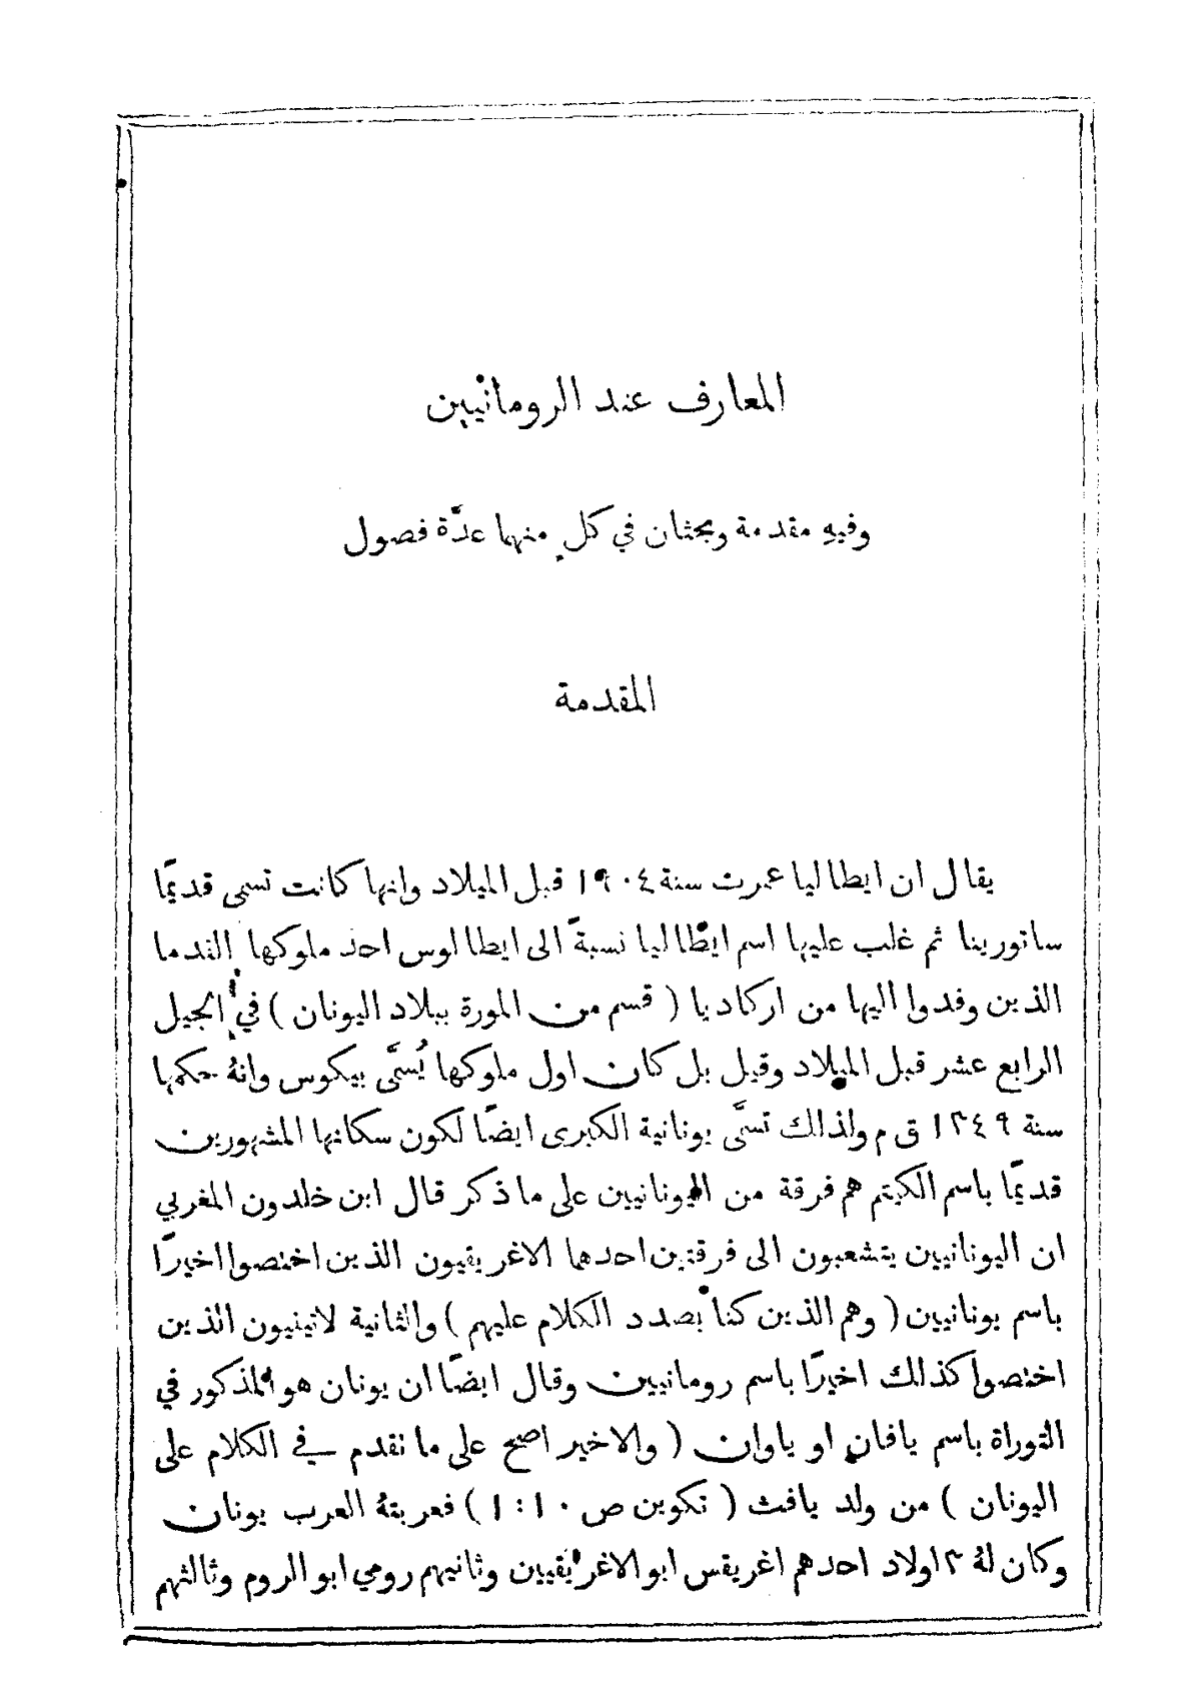 المعارف عند الرومانيين
وفيهِ مقدمة وبحثان في كلٍ منهما عدَّة فصول
المقدمة
يقال ان ايطاليا عمرت سنة ١٩٠٤ قبل الميلاد وانها كانت تسمى قديمًا
ساتورينا ثم غلب عليها اسم ايطاليا نسبةً الى ايطالوس احد ملوكها القدما
الذين وفدوا اليها من اركاديا ( قسم من المورة ببلاد اليونان ) في الجيل
الرابع عشر قبل الميلاد وقيل بل كان اول ملوكها يُسمَّى بيكوس وانهُ حكمها
سنة ١٣٤٩ ق م ولذلك تسمَّى يونانية الكبرى ايضًا لكون سكانها المشهورين
قديمًا باسم الكيتم هم فرقة من اليونانيين على ما ذكر قال ابن خلدون المغربي
ان اليونانيين يتشعبون الى فرقتين احدهما الاغريقيون الذين اختصوا اخيرًا
باسم يونانيين ( وهم الذين كنا بصدد الكلام عليهم ) والثانية لاتينيون الذين
اختصوا كذلك اخيرًا باسم رومانيين وقال ايضًا ان يونان هو المذكور في
التوراة باسم يافان او ياوان ( والاخير اصح على ما تقدم في الكلام على
اليونان ) من ولد يافث ( تكوين ص ١٠ : ١ ) فعربتهُ العرب يونان
وكان لهُ ٣ اولاد احدهم اغريقس ابو الاغريقيين وثانيهم رومي ابو الروم وثالثهم